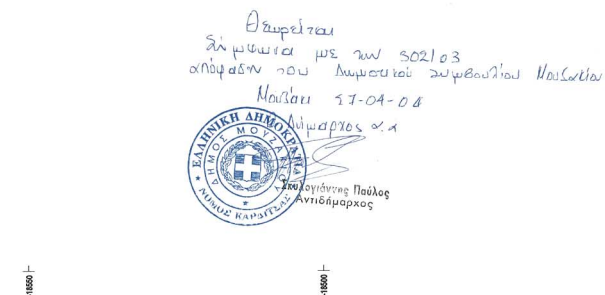 Θεωρείται
Σύμφωνα με την 302/03
απόφαση του Δημοτικού Συμβουλίου Μουζακίου
Μουζάκι 27-04-04
Δήμαρχος α.α
ΕΛΛΗΝΙΚΗ ΔΗΜΟΚΡΑΤΙΑ
ΔΗΜΟΣ ΜΟΥΖΑΚΙΟΥ
ΝΟΜΟΣ ΚΑΡΔΙΤΣΑΣ
Σκυλογιάννης Παύλος
Αντιδήμαρχος
-18550
-18500